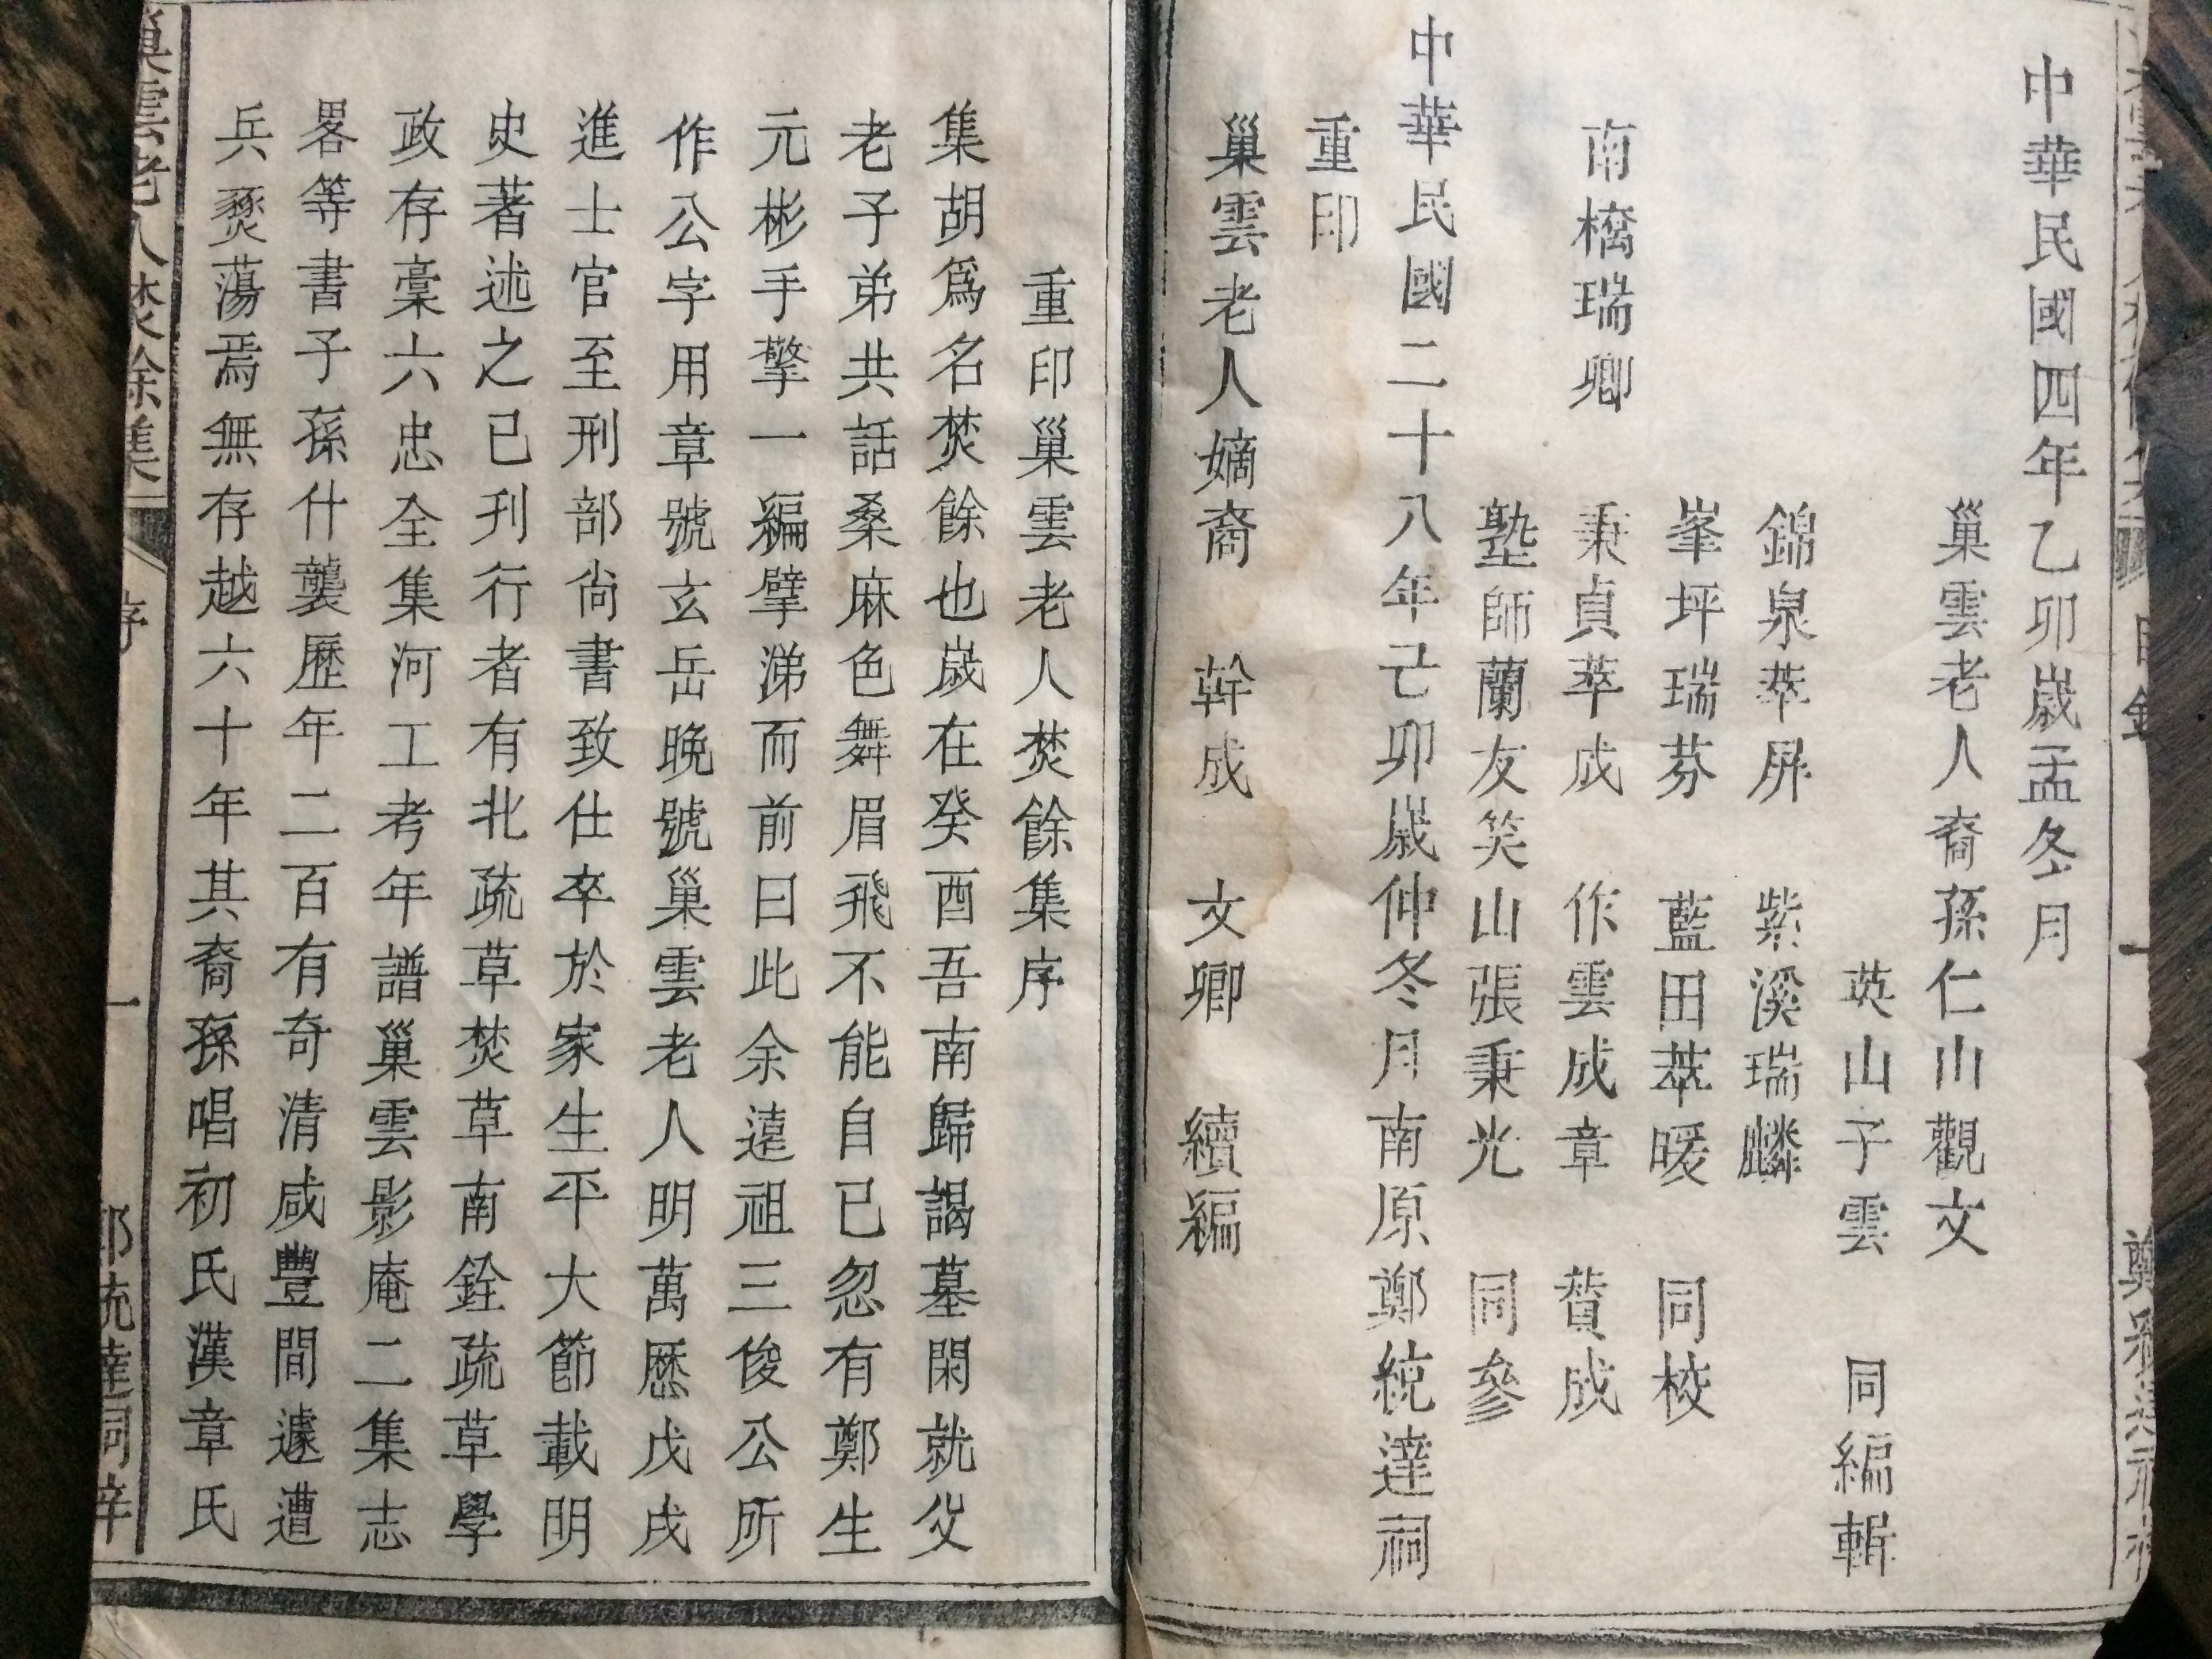 中華民國四年乙卯歲孟冬月
巢雲老人裔孫仁山觀文
英山子雲 同編輯
錦泉萃屏 紫溪瑞麟
峯坪瑞芬 藍田萃暖 同校
南㯭瑞卿 秉貞萃成 作雲成章 贊成
塾師蘭友笑山張秉光 同參
中華民國二十八年己卯歲仲冬月南原鄭統達祠
重印
巢雲老人嫡裔 幹成 文卿 續編
重印巢雲老人焚餘集序
集胡爲名焚餘也歲在癸酉吾南歸謁墓閑就父
老子弟共話桑麻色舞眉飛不能自已忽有鄭生
元彬手擎一編擘涕而前曰此余遠祖三俊公所
作公字用章號玄岳晚號巢雲老人明萬厯戊戌
進士官至刑部尙書致仕卒於家生平大節載明
史著述之已刋行者有北疏草焚草南銓疏草學
政存稾六忠全集河工考年譜巢雲影庵二集志
畧等書子孫什襲歷年二百有奇清咸豐間遽遭
兵燹蕩焉無存越六十年其裔孫唱初氏漢章氏
巢雲老人焚餘集 序 一 鄭統達祠梓